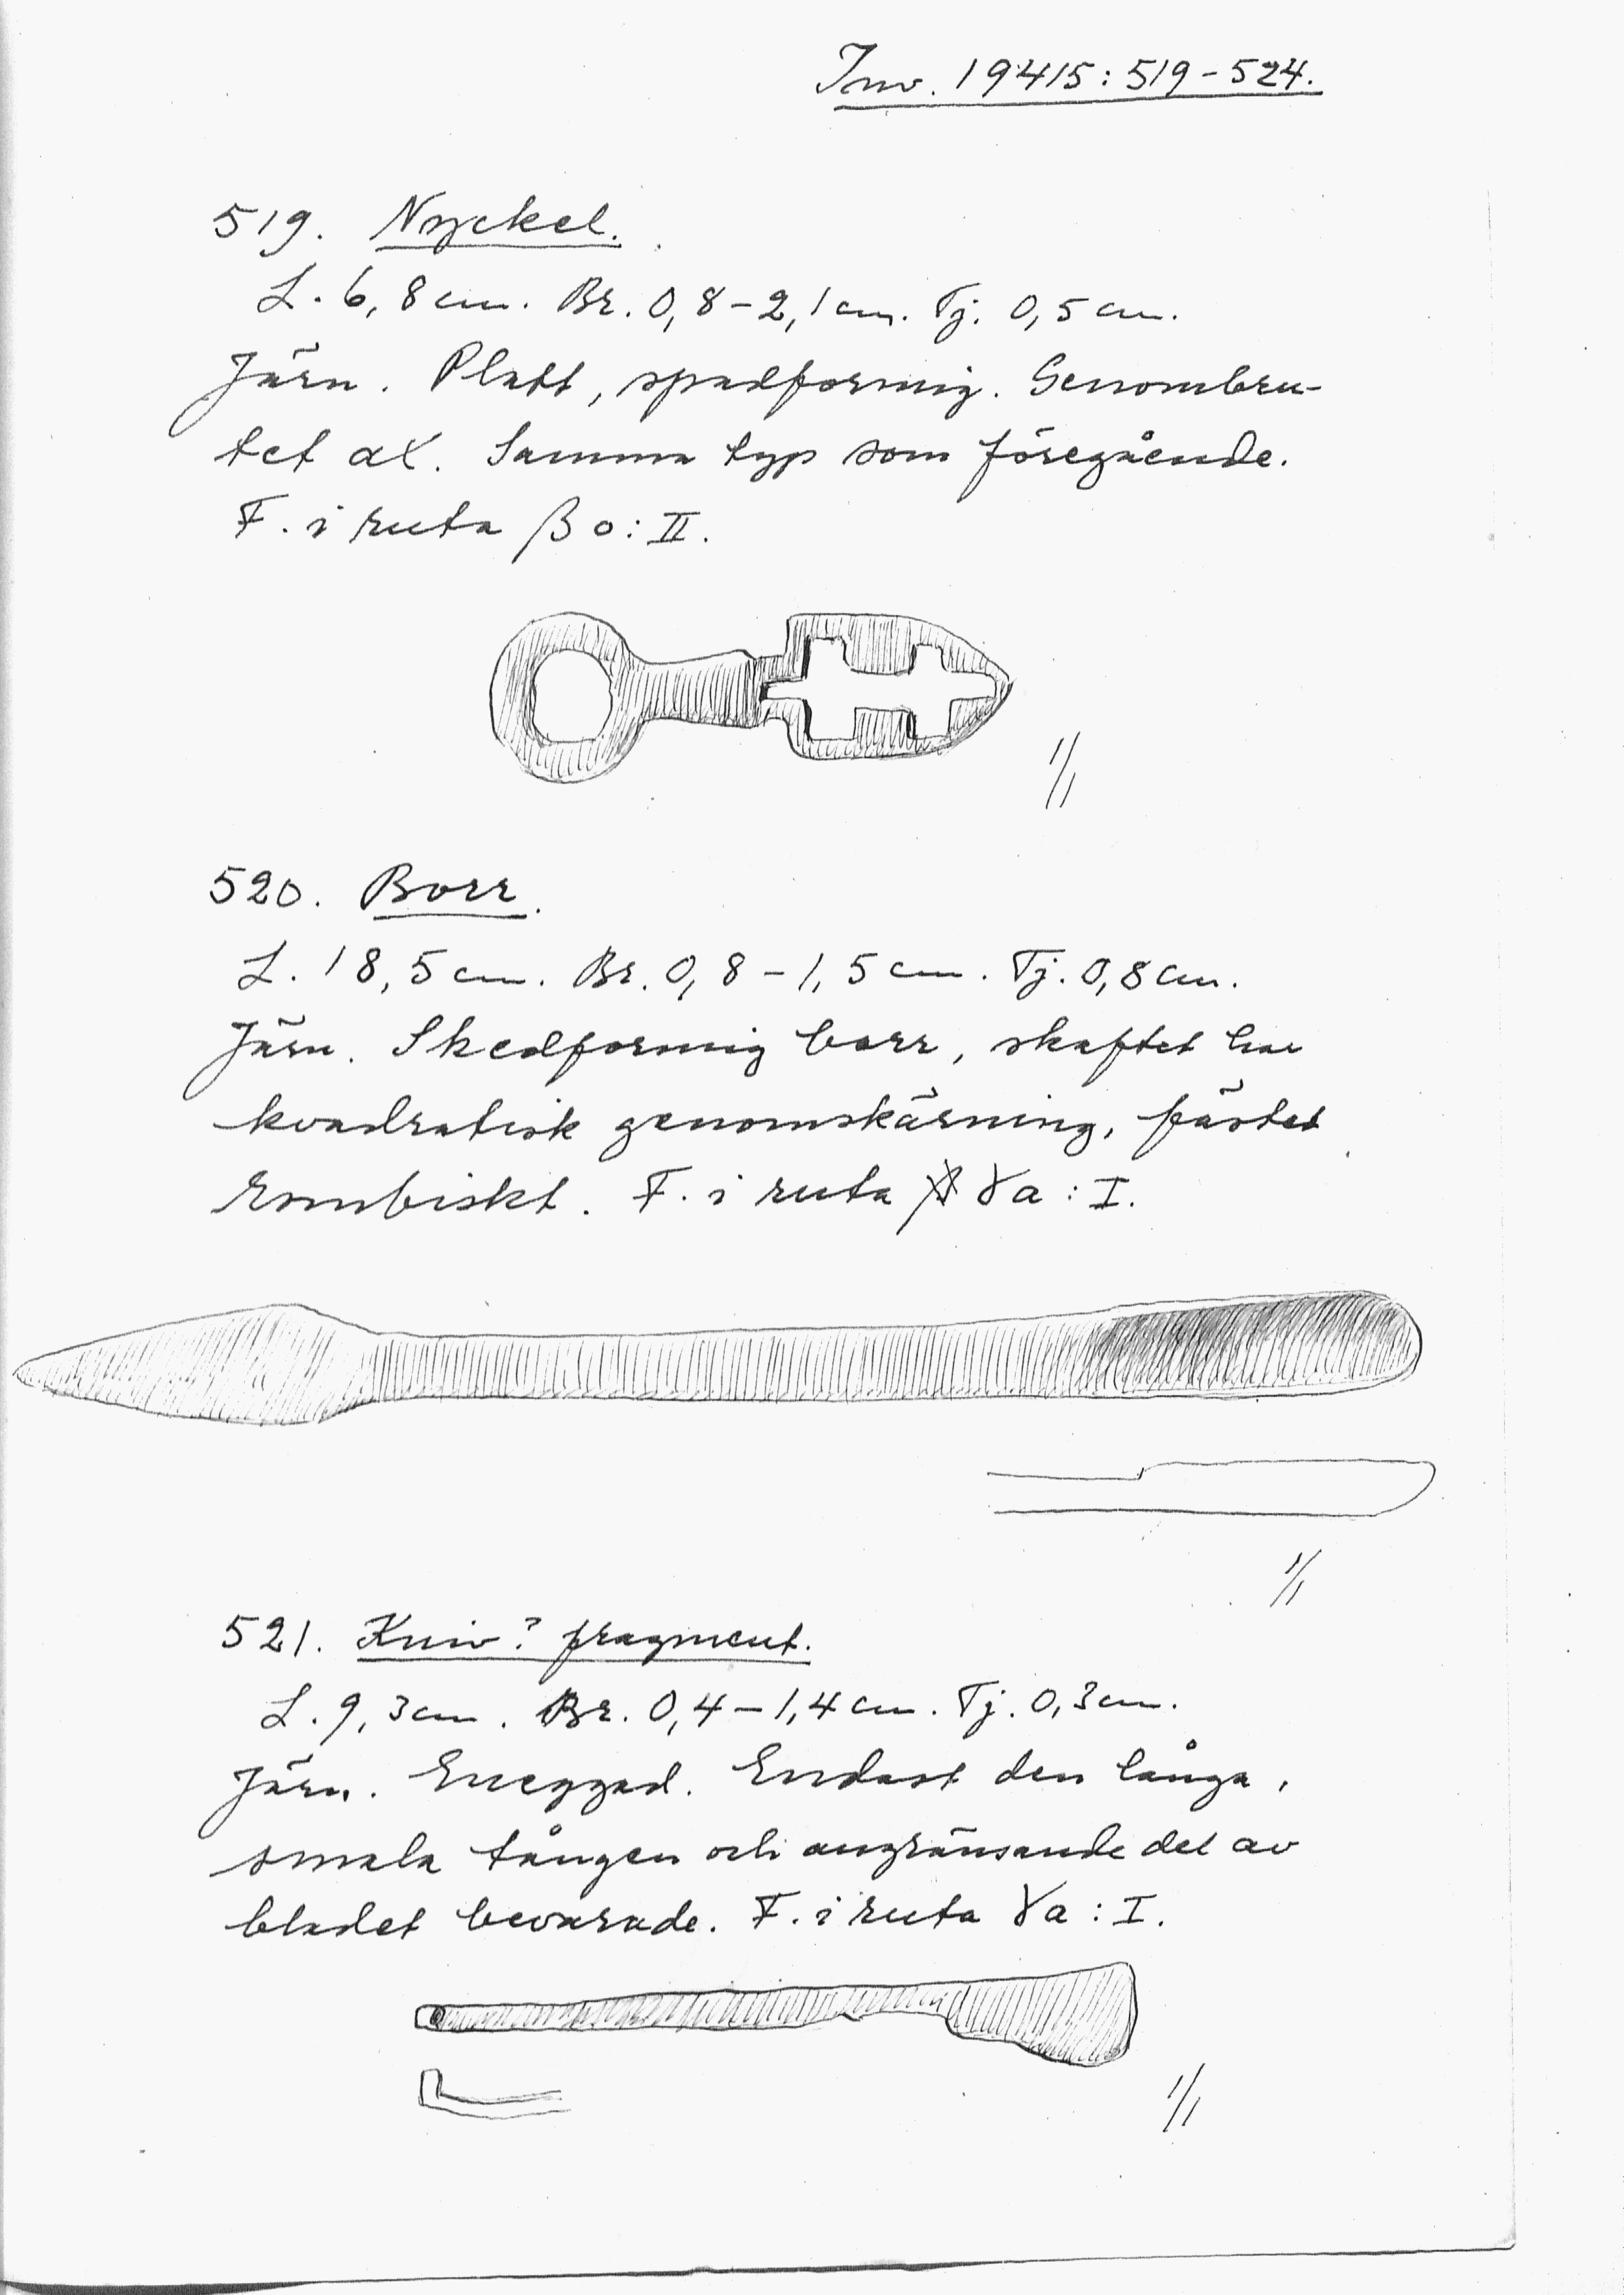 Inv. 19415:519-524.
519. Nyckel.
L. 6,8 cm. Br. 0,8-2,1 cm. Tj. 0,5 cm.
Järn. Platt, spadformig. Genombru-
tet ax. Samma typ som föregående.
F. i ruta βo:II.
1/1
520. Borr.
L. 18,5 cm. Br. 0,8-1,5 cm. Tj. 0,8 cm.
Järn. Skedformig borr, skaftet har
kvadratisk genomskärning, fästet
rombiskt. F. i ruta γa:I.
1/1
521. Kniv? fragment.
L. 9,3 cm. Br. 0,4-1,4 cm. Tj. 0,3 cm.
Järn. Eneggad. Endast den långa,
smala tången och angränsande del av
bladet bevarade. F. i ruta γa:I.
1/1